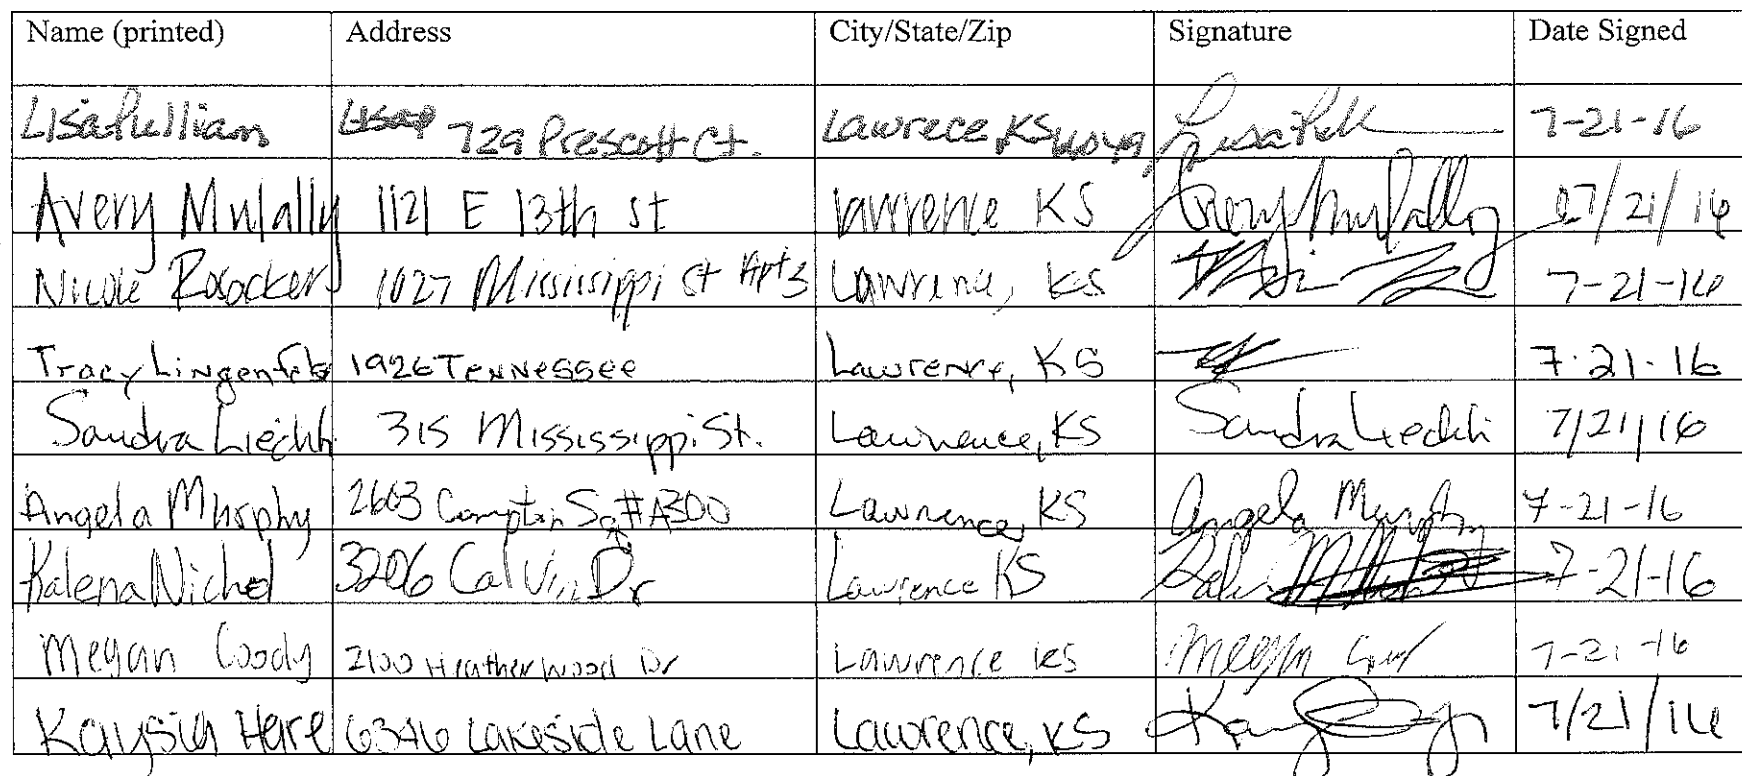 Name (printed) Address City/State/Zip Signature Date Signed
Lisa Pulliam 729 Prescott Ct. Lawrece KS 66049 7-21-16
Avery Mulally 1121 E 13th st lawrence KS Avery Mulally 07/21/16
Nicole Rosocker 1027 Mississippi St Apt 3 Lawrence, KS 7-21-16
Tracy Lingenfelser 1926 Tennessee Lawrence, KS 7-21-16
Sandra Liechti 315 Mississippi St. Lawrence, KS Sandra Liechti 7/21/16
Angela Murphy 2603 Compton Sq #A300 Lawrence, KS Angela Murphy 7-21-16
Kalena Nichol 3206 Calvin Dr Lawrence KS 7-21-16
Megan Coody 2100 Heatherwood Dr Lawrence KS Megan 7-21-16
Kaysia Hare 6346 Lakeside Lane Lawrence, KS 7/21/16